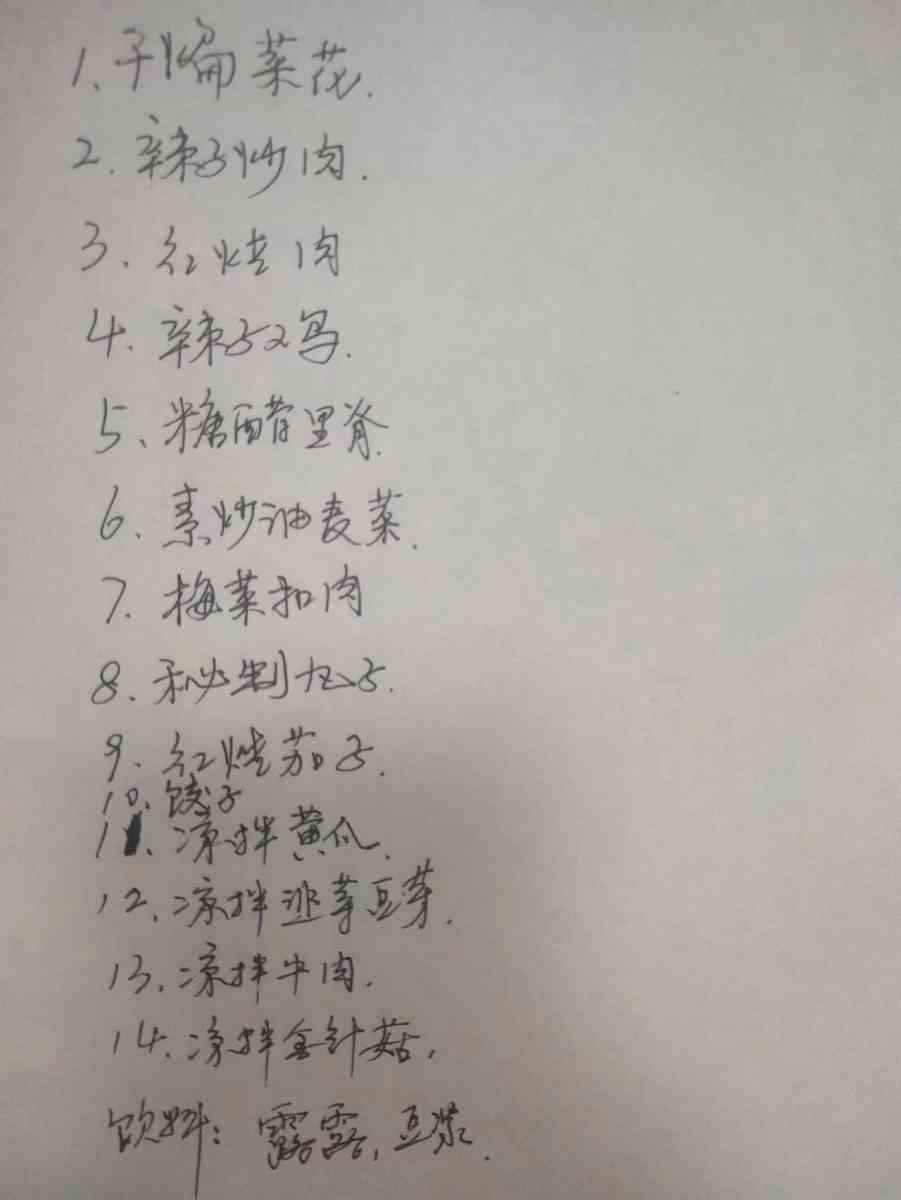 1、干煸菜花.
2. 辣子炒肉.
3. 红烧肉
4. 辣子鸡.
5、糖醋里脊
6、素炒油麦菜.
7. 梅菜扣肉
8、秘制丸子.
9、红烧茄子.
10、饺子
11、凉拌黄瓜.
12、凉拌韭芽豆芽.
13、凉拌牛肉.
14、凉拌金针菇.
饮料：露露、豆浆.